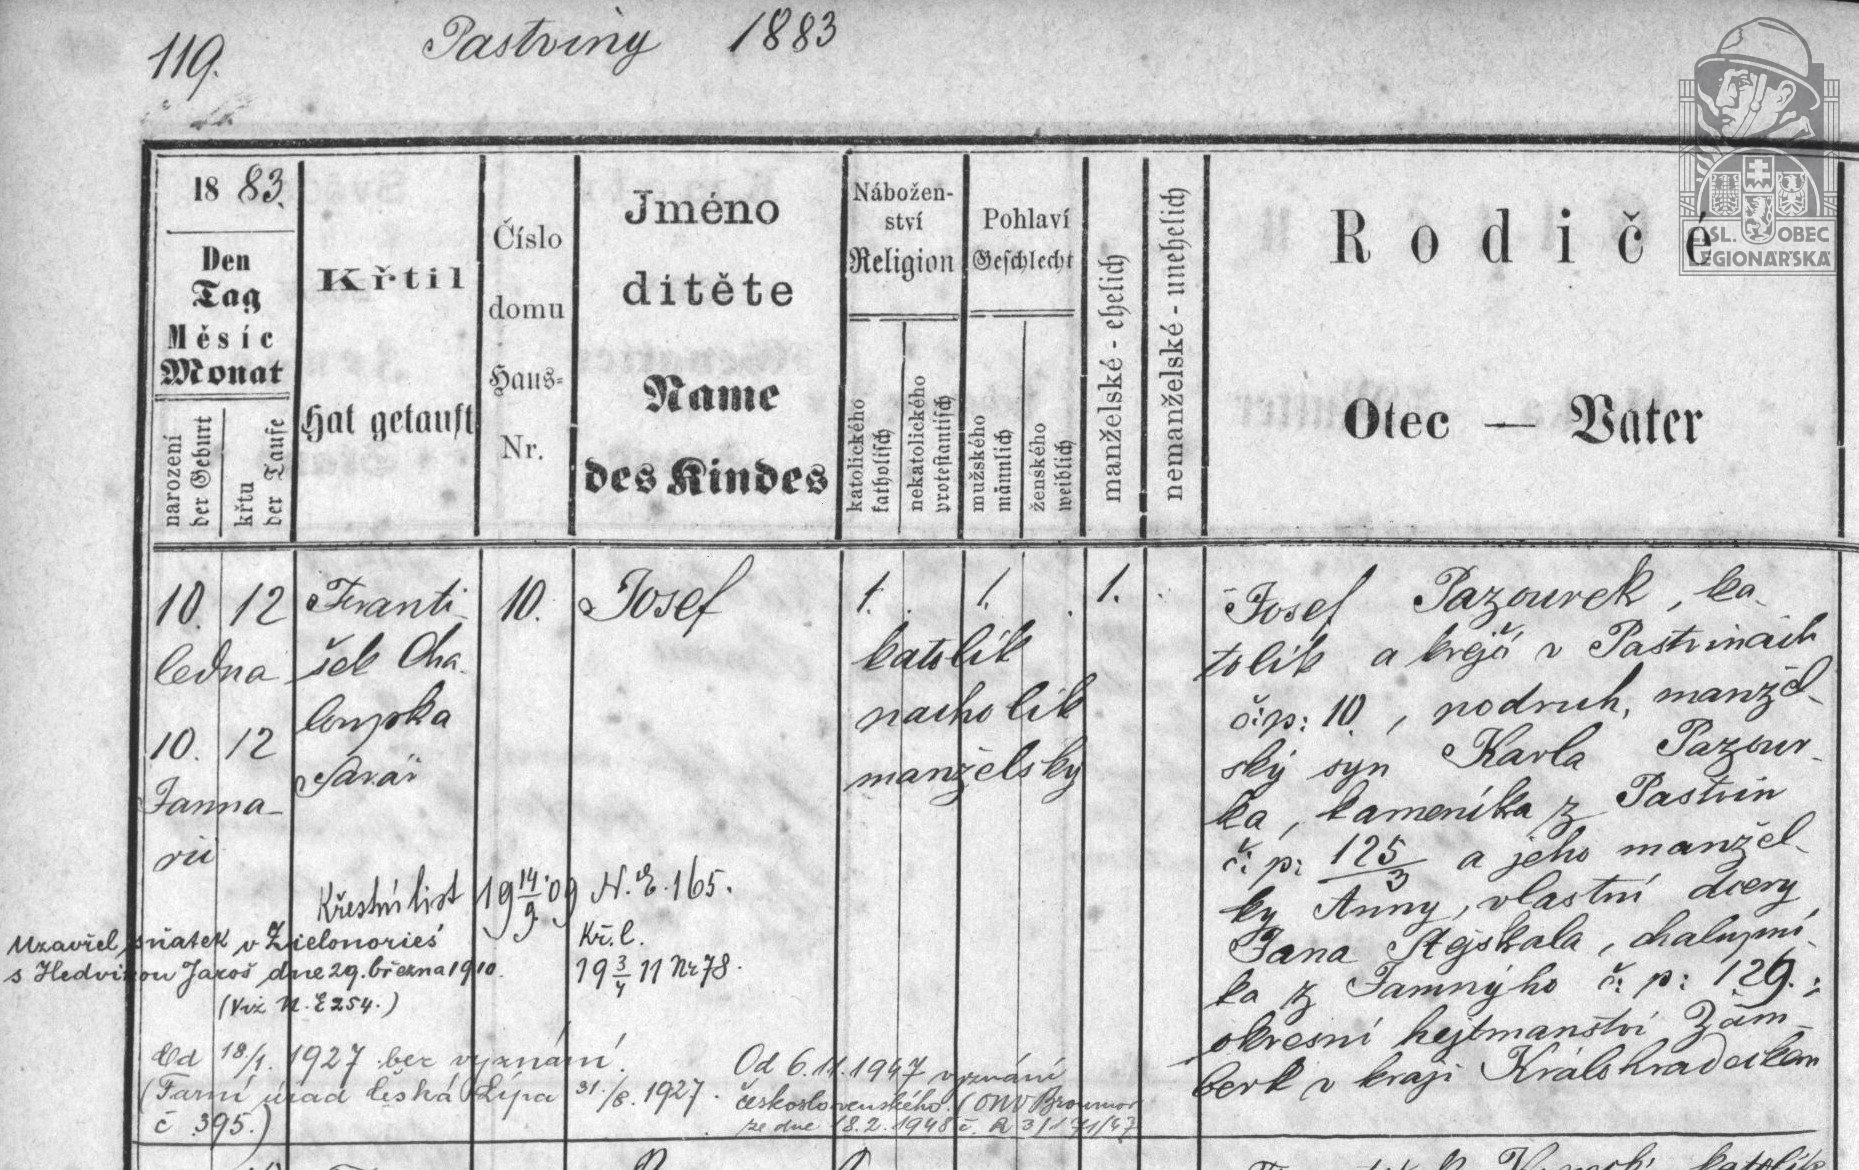 119.
Pastviny 1883
SL. OBEC
LEGIONÁŘSKÁ
18 83.
Den
Tag
Měsíc
Monat
narození
der Geburt
křtu
der Taufe
Křtil
Hat getauft
Číslo
domu
Haus-
Nr.
Jméno
dítěte
Name
des Kindes
Nábožen-
ství
Religion
katolického
katholisch
nekatolického
protestantisch
Pohlaví
Geschlecht
mužského
männlich
ženského
weiblich
manželské - ehelich
nemanželské - unehelich
Rodiče
Otec — Vater
10. 12
ledna
10. 12
Janua-
rii
Franti-
šek Cha-
loupka
farář
10.
Josef
1. 1. 1.
katolík
pacholík
manželský
Josef Pazourek, ka-
tolík a krejčí v Pastvinách
č: p: 10, podruh, manžel-
ský syn Karla Pazour-
ka, kameníka z Pastvin
č: p: 125/3 a jeho manžel-
ky Anny, vlastní dcery
Jana Stejskala, chalupní-
ka z Jamnýho č: p: 129.;
okresní hejtmanství Žam-
berk v kraji Králohradeckém
Křestní list 19 14/9 09 N. E. 165.
Kř. l.
19 3/4 11 Nr 78.
Uzavřel sňatek v Zielonorieš
s Hedvikou Jaroš dne 29. března 1910.
(Viz N. E 254.)
Od 18/1. 1927 bez vyznání.
(Farní úřad Česká Lípa 31./8. 1927.
č 395.)
Od 6.11.1947 vyznání
československého. (ONV Broumov
ze dne 18.2.1948 č.